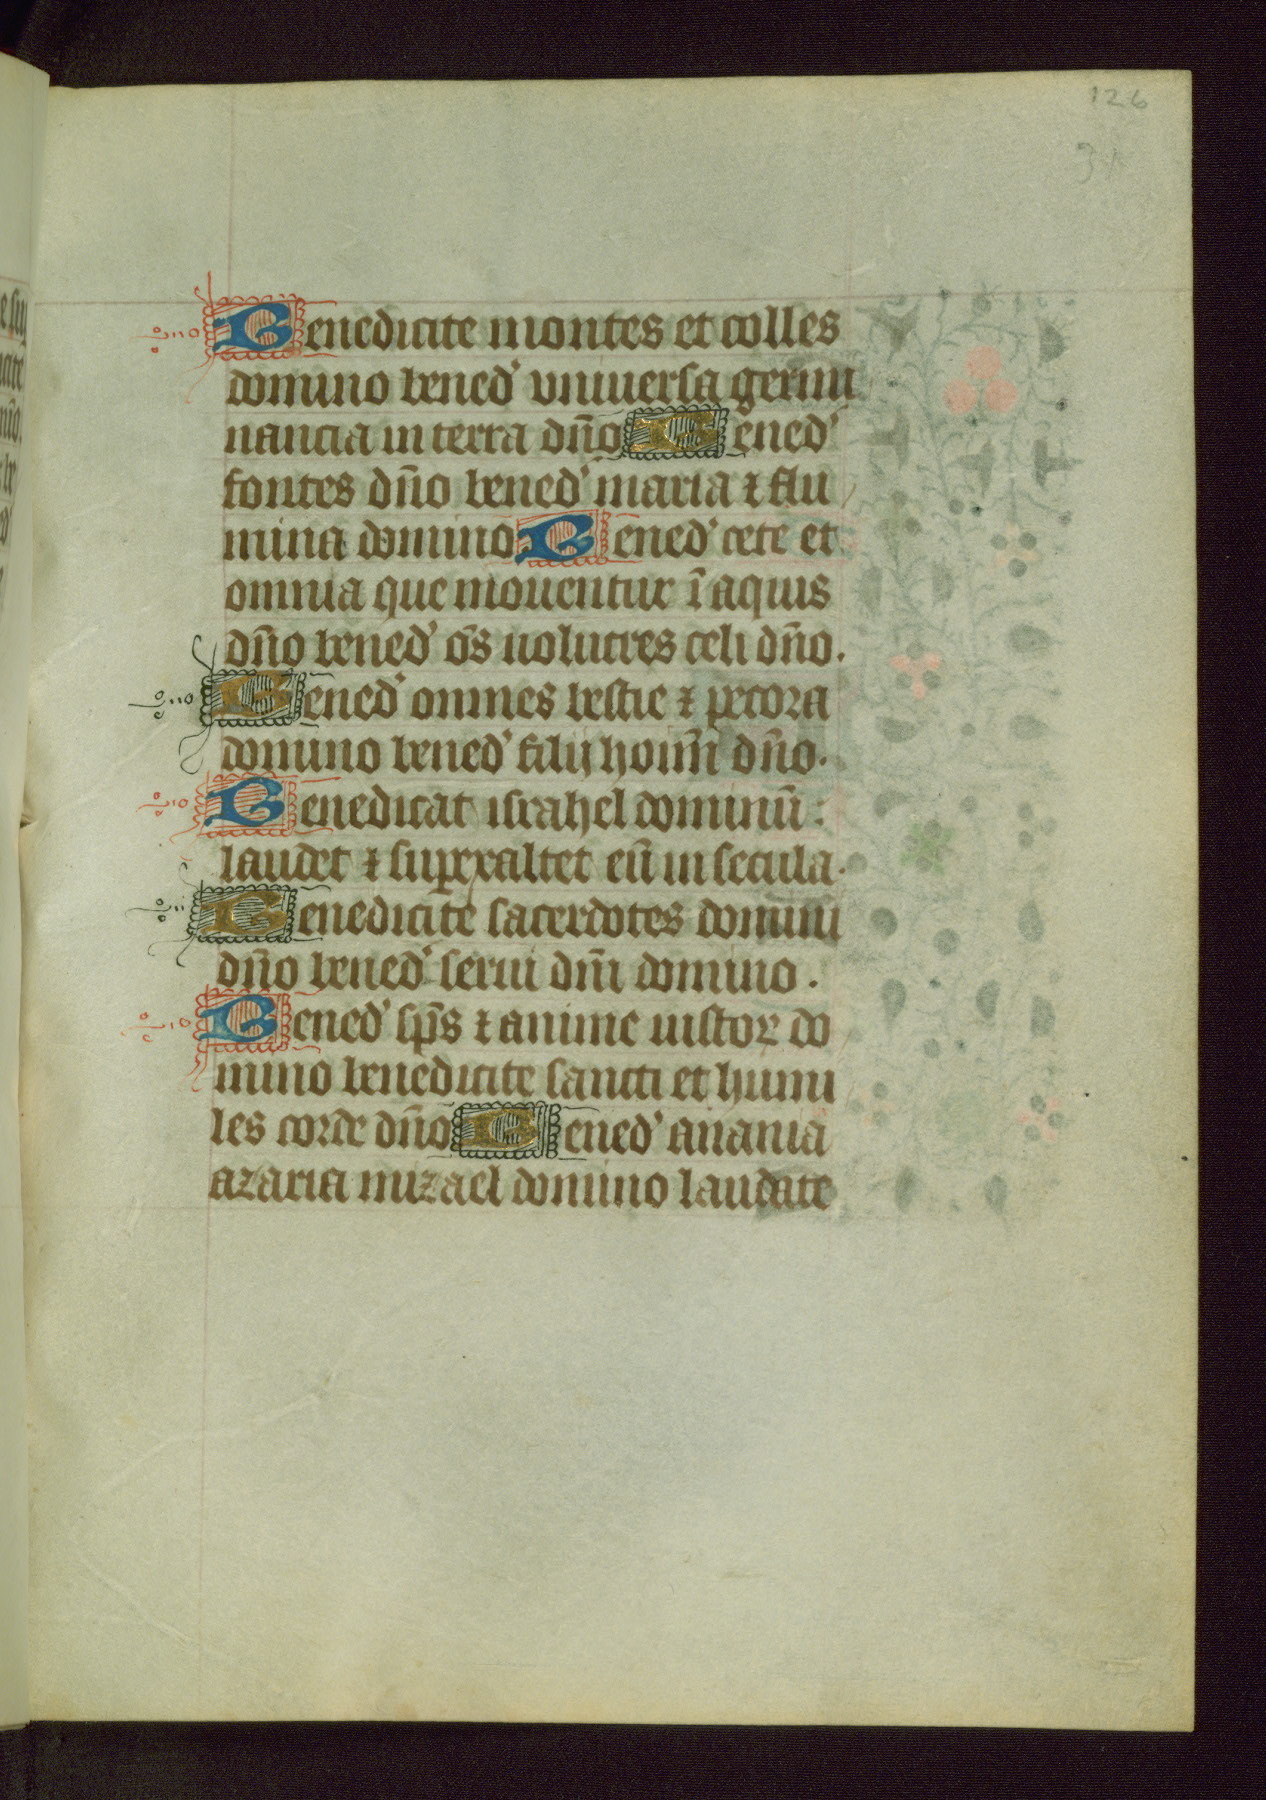 126
Benedicite montes et colles
domino bened' vniuersa germi
nancia in terra dño Bened'
fontes dño bened' maria ⁊ flu
mina domino Bened' cete et
omnia que mouentur ĩ aquis
dño bened' õs uolucres celi dño.
Bened' omnes bestie ⁊ pecora
domino bened' filij hoım̃ dño.
Benedicat israhel dominũ :
laudet ⁊ suꝑexaltet eũ in secula.
Benedicite sacerdotes domini
dño bened' serui dñi domino .
Bened' sp̃s ⁊ anime iustoꝝ do
mino benedicite sancti et humi
les corde dño Bened' anania
azaria mizael domino laudate